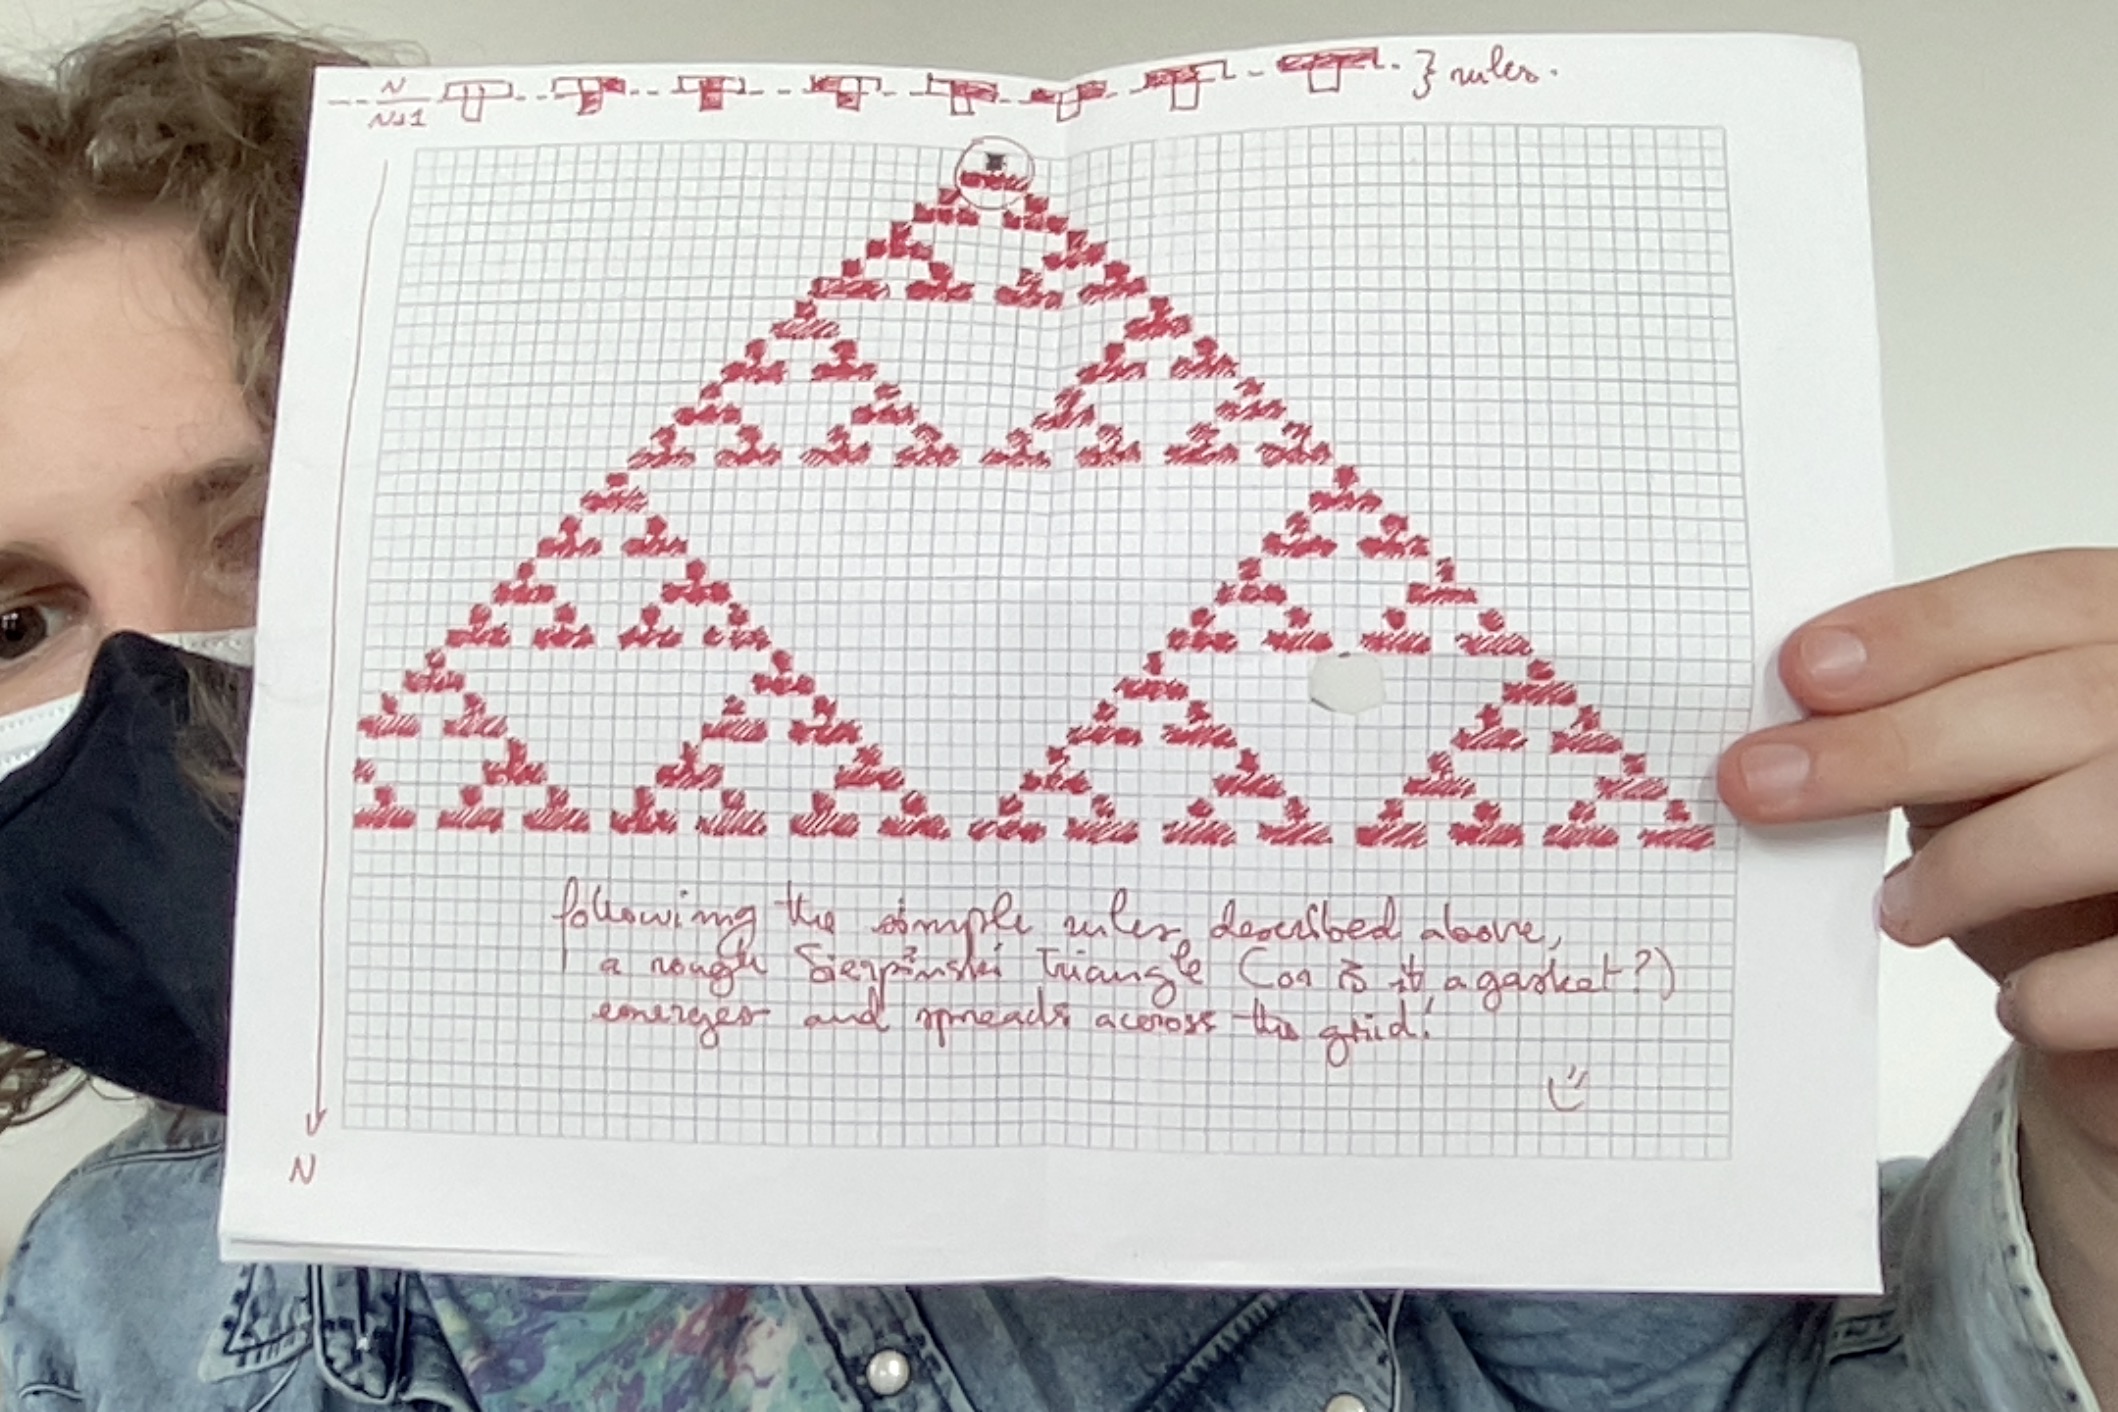 N
N+1
} rules.
following the simple rules described above,
a rough Sierpinski Triangle (or is it a gasket?)
emerges and spreads across the grid!
N